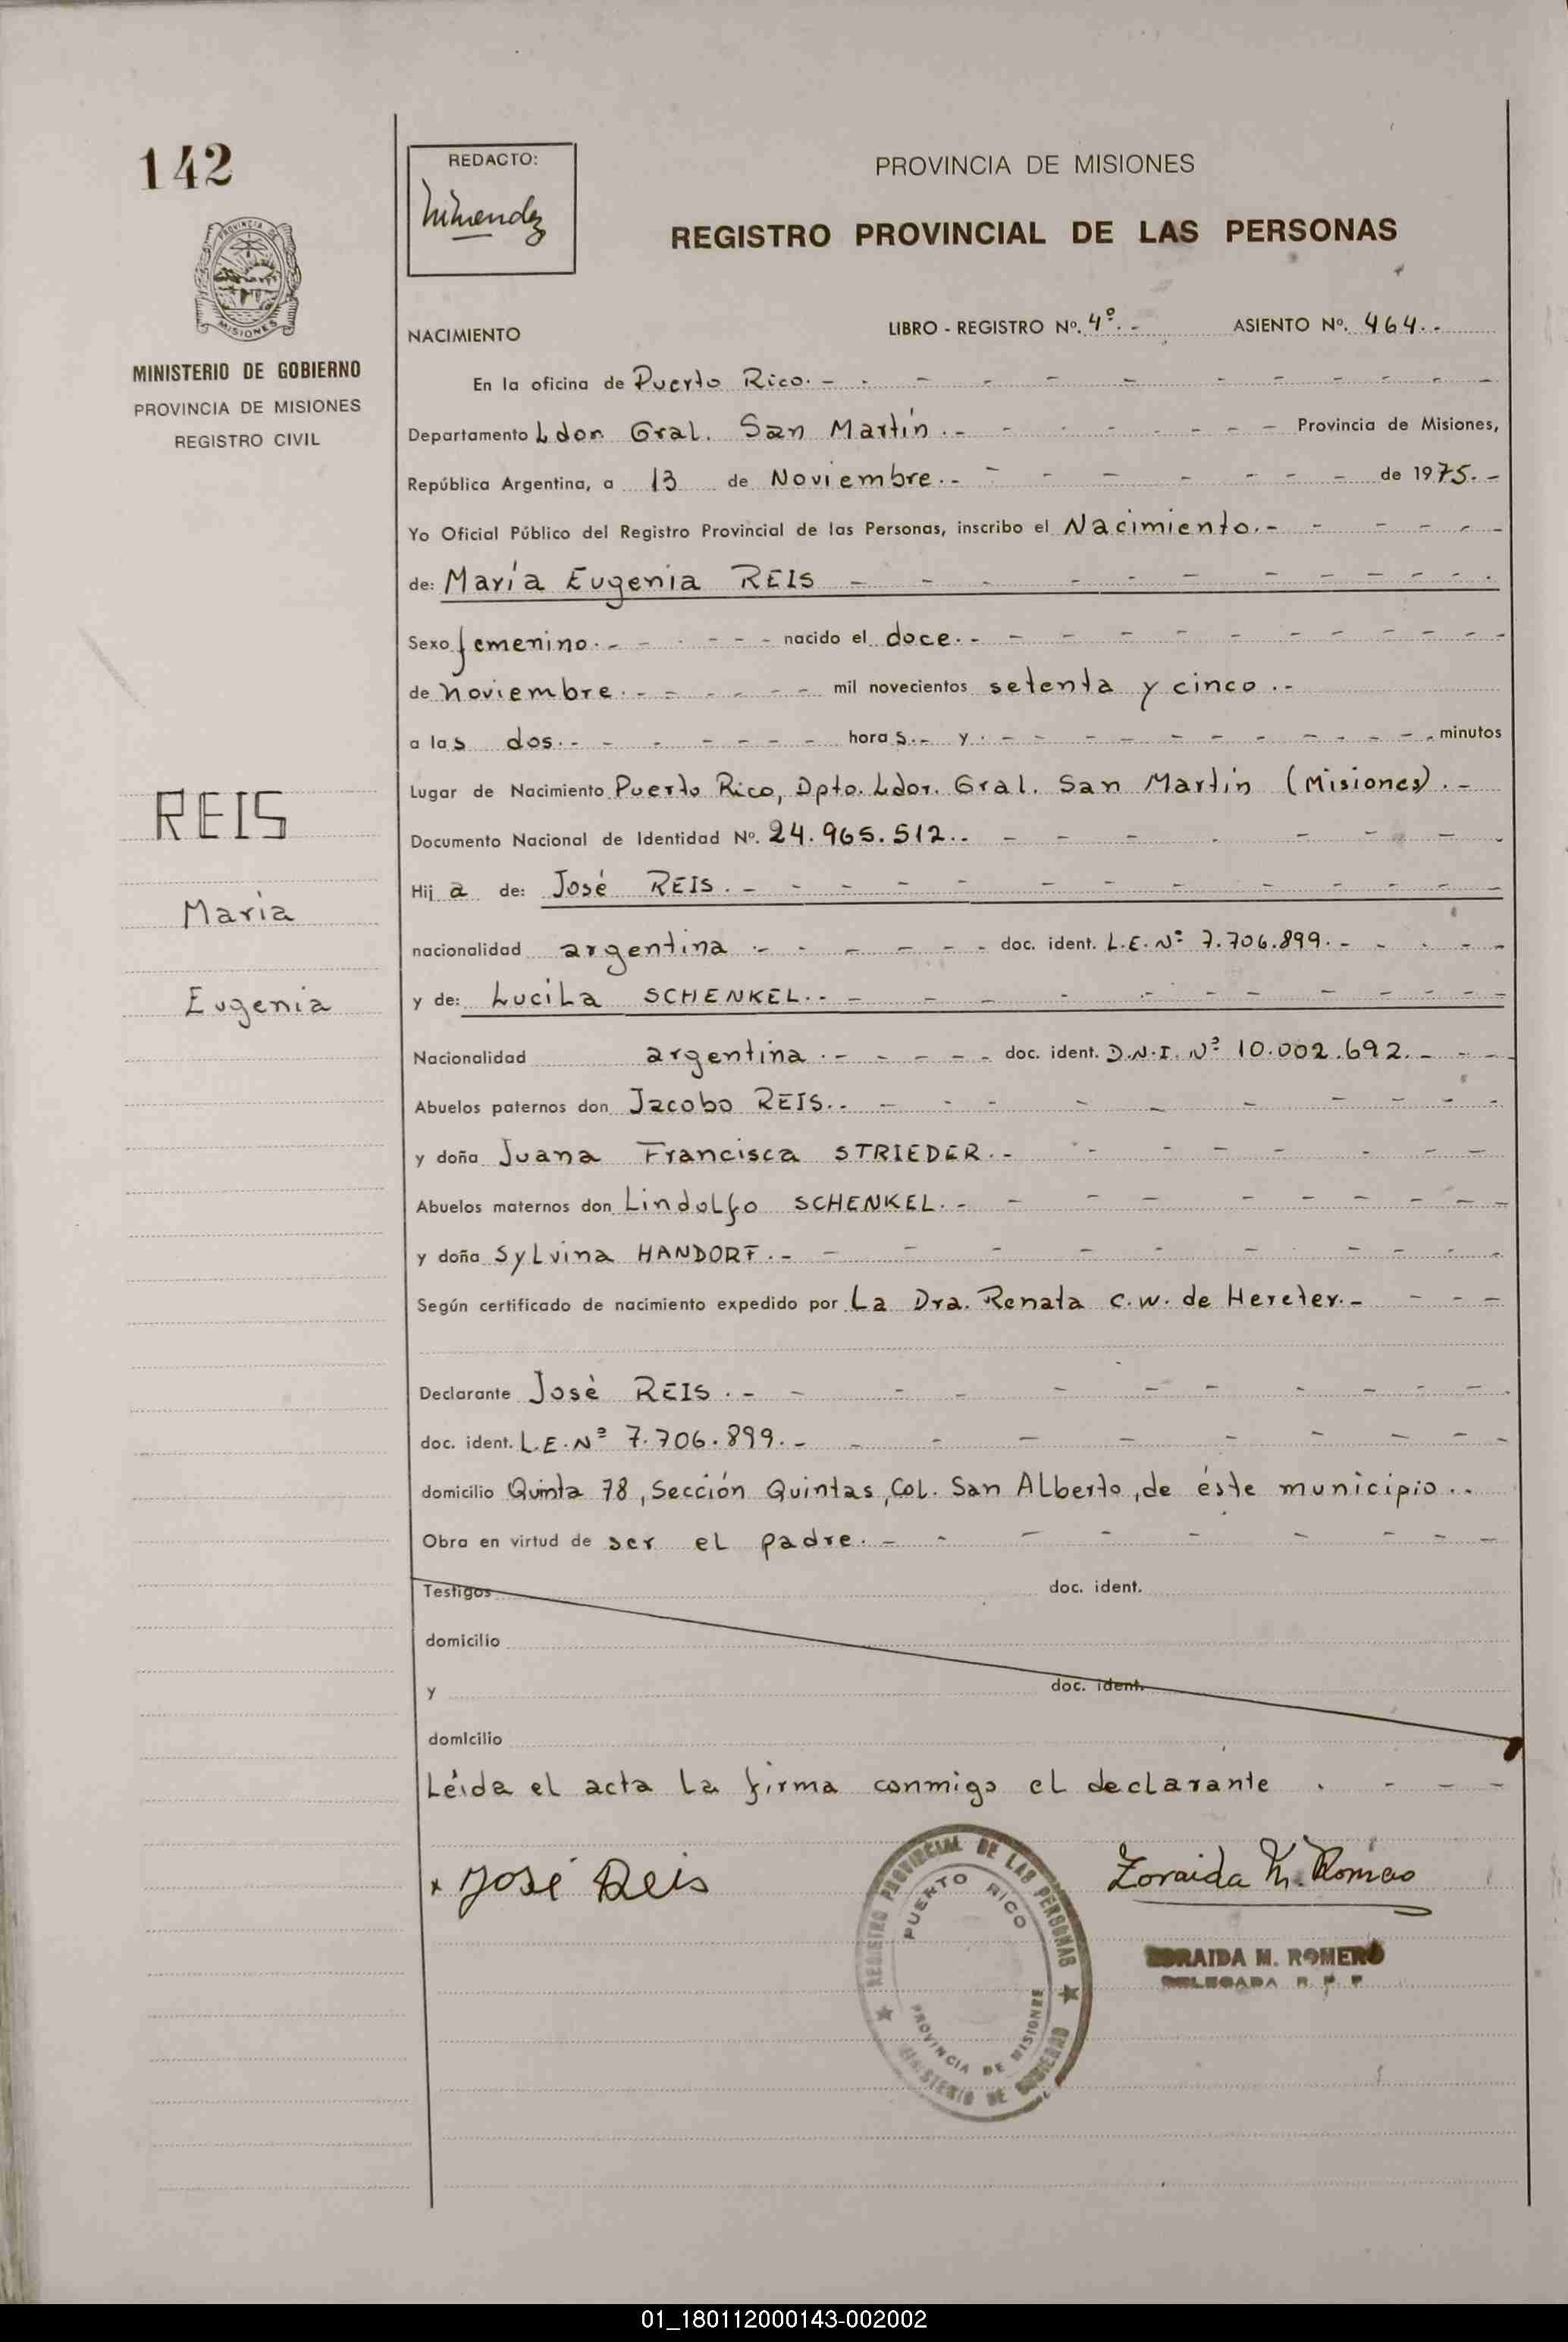 142
PROVINCIA DE
MISIONES
MINISTERIO DE GOBIERNO
PROVINCIA DE MISIONES
REGISTRO CIVIL
REIS
María
Eugenia
REDACTO:
PROVINCIA DE MISIONES
REGISTRO PROVINCIAL DE LAS PERSONAS
NACIMIENTO LIBRO - REGISTRO Nº. 4º.- ASIENTO Nº. 464.-
En la oficina de Puerto Rico.-
Departamento Ldor. Gral. San Martín.- Provincia de Misiones,
República Argentina, a 13 de Noviembre.- de 1975.-
Yo Oficial Público del Registro Provincial de las Personas, inscribo el Nacimiento.-
de: María Eugenia REIS
Sexo femenino.- nacido el doce.-
de noviembre.- mil novecientos setenta y cinco.-
a las dos.- horas.- y.- minutos
Lugar de Nacimiento Puerto Rico, Dpto. Ldor. Gral. San Martín (Misiones).-
Documento Nacional de Identidad Nº. 24.965.512.-
Hija de: José REIS.-
nacionalidad argentina.- doc. ident. L.E. Nº 7.706.899.-
y de: Lucila SCHENKEL.-
Nacionalidad argentina.- doc. ident. D.N.I. Nº 10.002.692.-
Abuelos paternos don Jacobo REIS.-
y doña Juana Francisca STRIEDER.-
Abuelos maternos don Lindolfo SCHENKEL.-
y doña Sylvina HANDORF.-
Según certificado de nacimiento expedido por La Dra. Renata C.W. de Hereter.-
Declarante José REIS.-
doc. ident. L.E. Nº 7.706.899.-
domicilio Quinta 78, Sección Quintas, Col. San Alberto, de éste municipio.-
Obra en virtud de ser el padre.-
Testigos doc. ident.
domicilio
y doc. ident.
domicilio
Léida el acta la firma conmigo el declarante.-
x José Reis
Zoraida M. Romero
REGISTRO PROVINCIAL DE LAS PERSONAS
PUERTO RICO
PROVINCIA DE MISIONES
MINISTERIO DE GOBIERNO
ZORAIDA M. ROMERO
DELEGADA R. P. P.
01_180112000143-002002